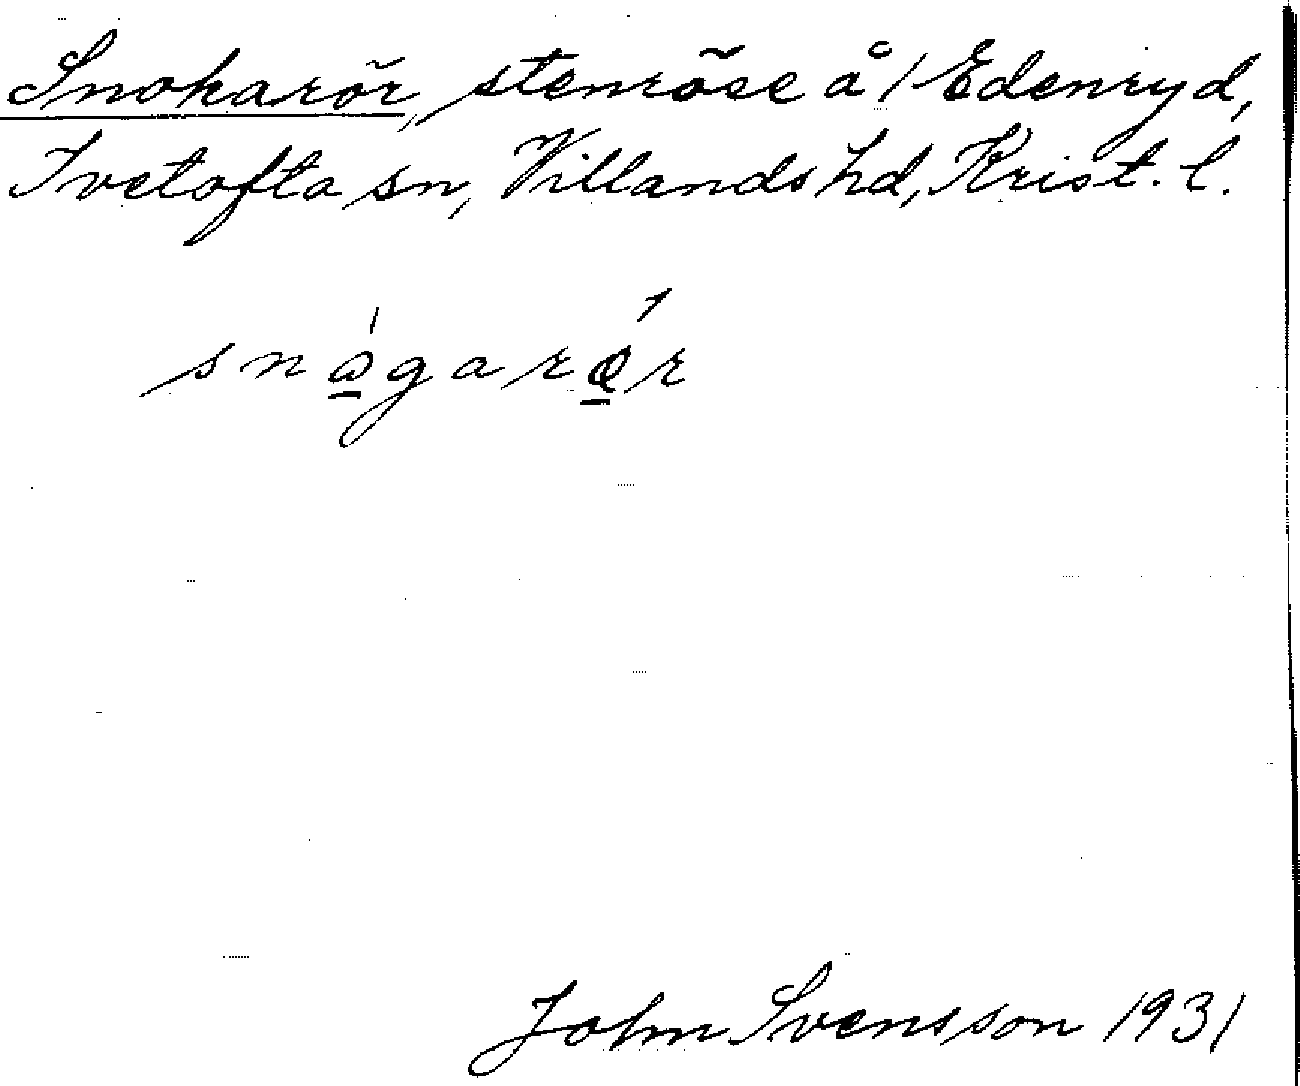 Snokarör, stenröse å / Edenryd,
Ivetofta sn, Villands hd, Krist. l.
snågarør
John Svensson 1931